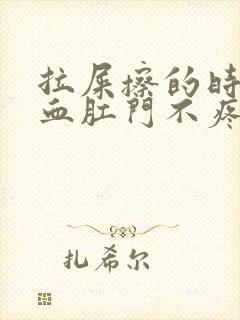 拉屎擦的时
血肛門不疼
扎希尔